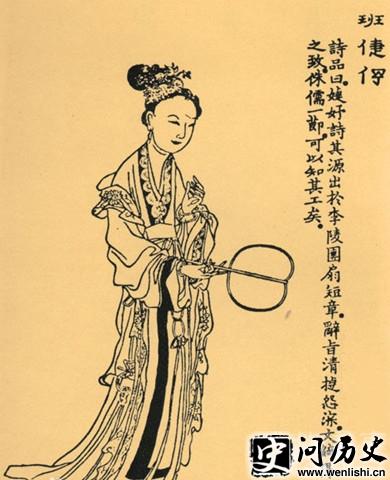 班倢伃
詩品曰。婕妤詩其源出於李陵團扇短章。辭旨清捷。怨深。文
之致。侏儒一節。可以知其工矣。
史问历史
www.wenlishi.cn